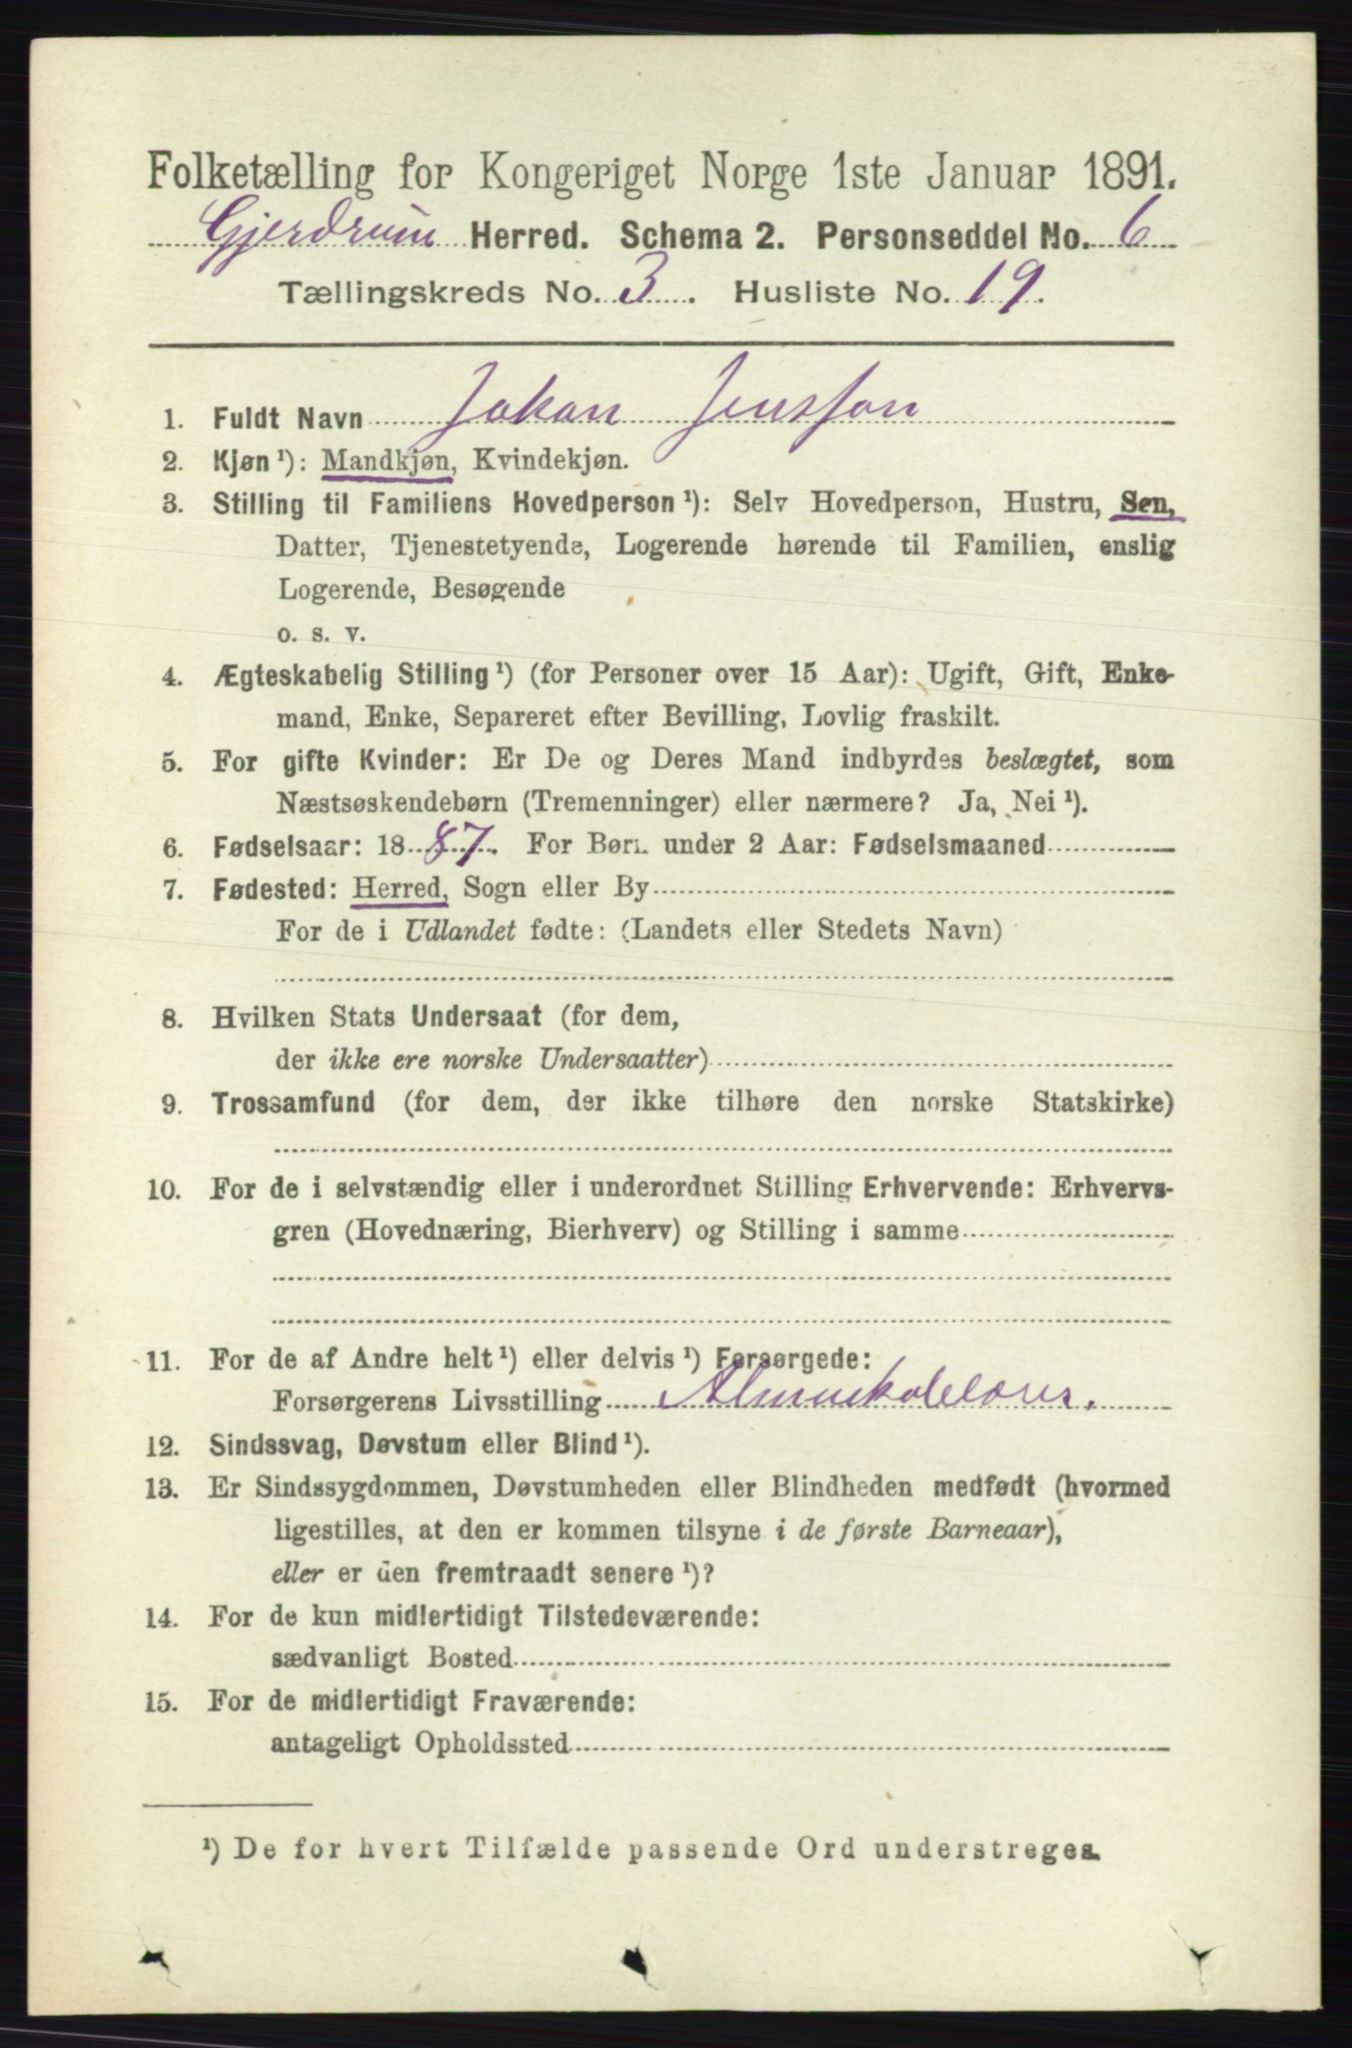 Folketælling for Kongeriget Norge 1ste Januar 1891.
Gjerdrum Herred. Schema 2. Personseddel No. 6
Tællingskreds No. 3. Husliste No. 19.
1. Fuldt Navn Johan Jensson
2. Kjøn ¹): Mandkjøn, Kvindekjøn.
3. Stilling til Familiens Hovedperson ¹): Selv Hovedperson, Hustru, Søn,
Datter, Tjenestetyende, Logerende hørende til Familien, enslig
Logerende, Besøgende
o. s. v.
4. Ægteskabelig Stilling ¹) (for Personer over 15 Aar): Ugift, Gift, Enke-
mand, Enke, Separeret efter Bevilling, Lovlig fraskilt.
5. For gifte Kvinder: Er De og Deres Mand indbyrdes beslægtet, som
Næstsøskendebørn (Tremenninger) eller nærmere? Ja, Nei ¹).
6. Fødselsaar: 1887. For Børn under 2 Aar: Fødselsmaaned
7. Fødested: Herred, Sogn eller By
For de i Udlandet fødte: (Landets eller Stedets Navn)
8. Hvilken Stats Undersaat (for dem,
der ikke ere norske Undersaatter)
9. Trossamfund (for dem, der ikke tilhøre den norske Statskirke)
10. For de i selvstændig eller i underordnet Stilling Erhvervende: Erhvervs-
gren (Hovednæring, Bierhverv) og Stilling i samme
11. For de af Andre helt ¹) eller delvis ¹) Forsørgede:
Forsørgerens Livsstilling
12. Sindssvag, Døvstum eller Blind ¹).
13. Er Sindssygdommen, Døvstumheden eller Blindheden medfødt (hvormed
ligestilles, at den er kommen tilsyne i de første Barneaar),
eller er den fremtraadt senere ¹)?
14. For de kun midlertidigt Tilstedeværende:
sædvanligt Bosted
15. For de midlertidigt Fraværende:
antageligt Opholdssted
¹) De for hvert Tilfælde passende Ord understreges.